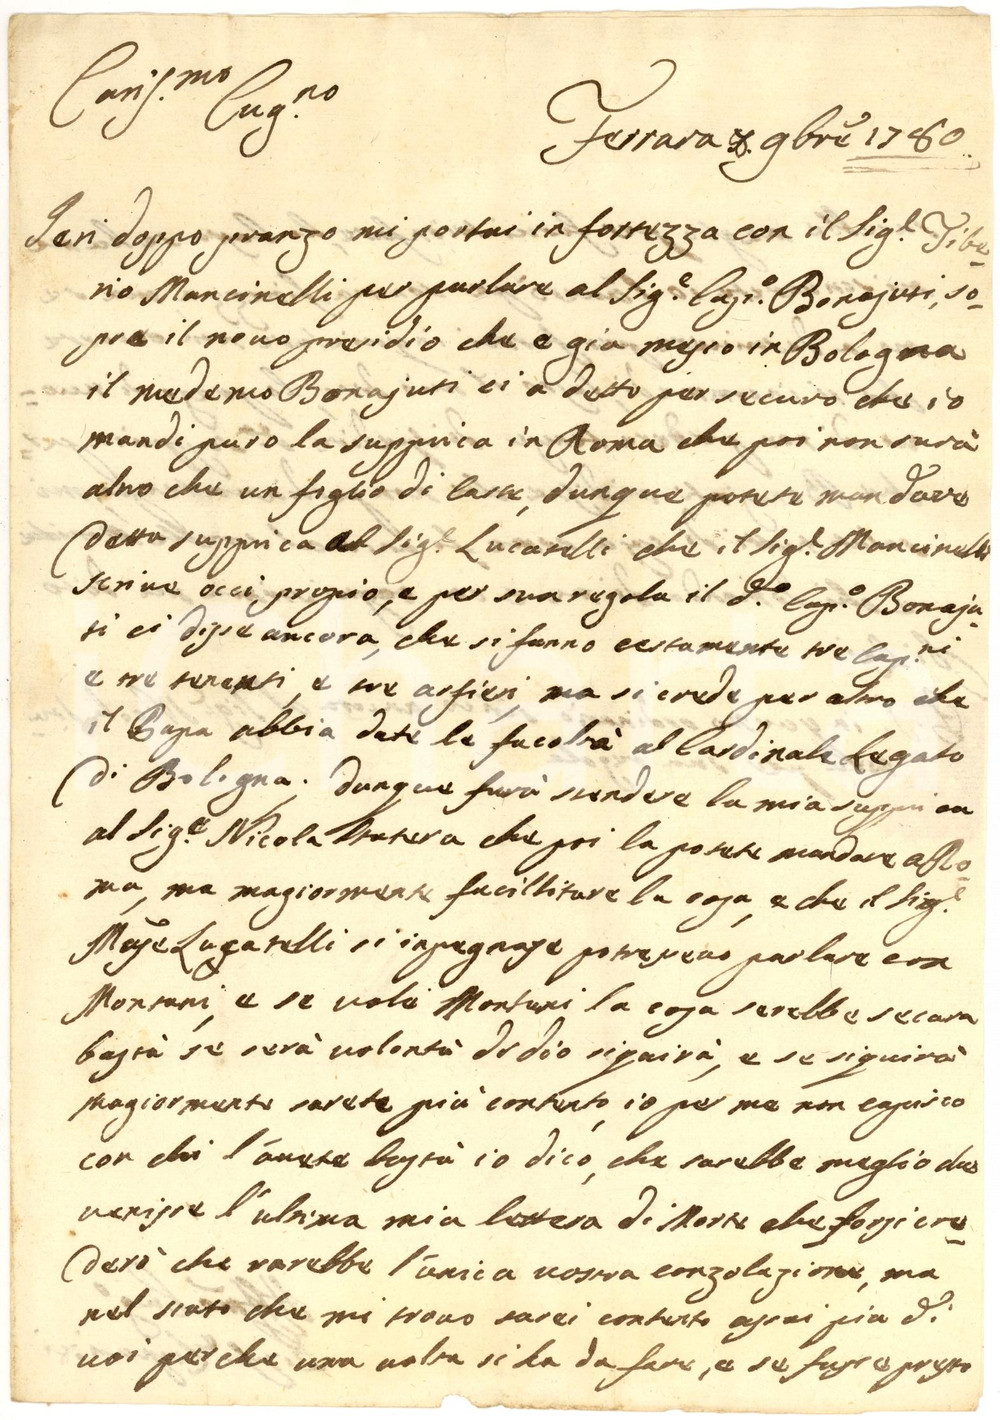 Caris.mo Cug.no
Ferrara 8. 9bre 1780
Jeri doppo pranzo mi portai in fortezza con il Sig.r Tibe-
rio Mancinelli per parlare al Sig.e Cap.o Bonajuti, so-
pra il novo presidio che e gia messo in Bologna
il medemo Bonajuti ci a detto per securo che io
mandi puro la supprica in Roma che poi non sarà
altro che un figlio di Caste, dunque potete mandare
detta supprica al Sig.r Lucatelli che il Sig.r Mancinelli
scrive occi propio, e per sua regola il d.o Cap.o Bonaju-
ti ci disse ancora, che si fanno certamente tre Cap.ni
e tre tenenti, e tre alfieri, ma si crede per altro che
il Papa abbia date le facoltà al Cardinale Legato
di Bologna. dunque farà stendere la mia supprica
al Sig.e Nicola Statera che poi la potete mandare a Ro-
ma, ma magiormente faciltitare la cosa, e che il Sig.e
Lucatelli si inpegnase potressevo parlare con
Montani, e se vole Montani la cosa serebbe secura
bastà se serà volontà di dio siguirà, e se siguirà
magiormente sarete più contento, io per me non capisco
con chi l'avete bastà io dico, che sarebbe meglio che
venisse l'ultima mia lettera di Morte che forsi cre-
derò che sarebbe l'unica vostra conzolazione, ma
nel stato che mi trovo sarei contento assai più di
voi perche una volta si ha da fare, e se fusse presto